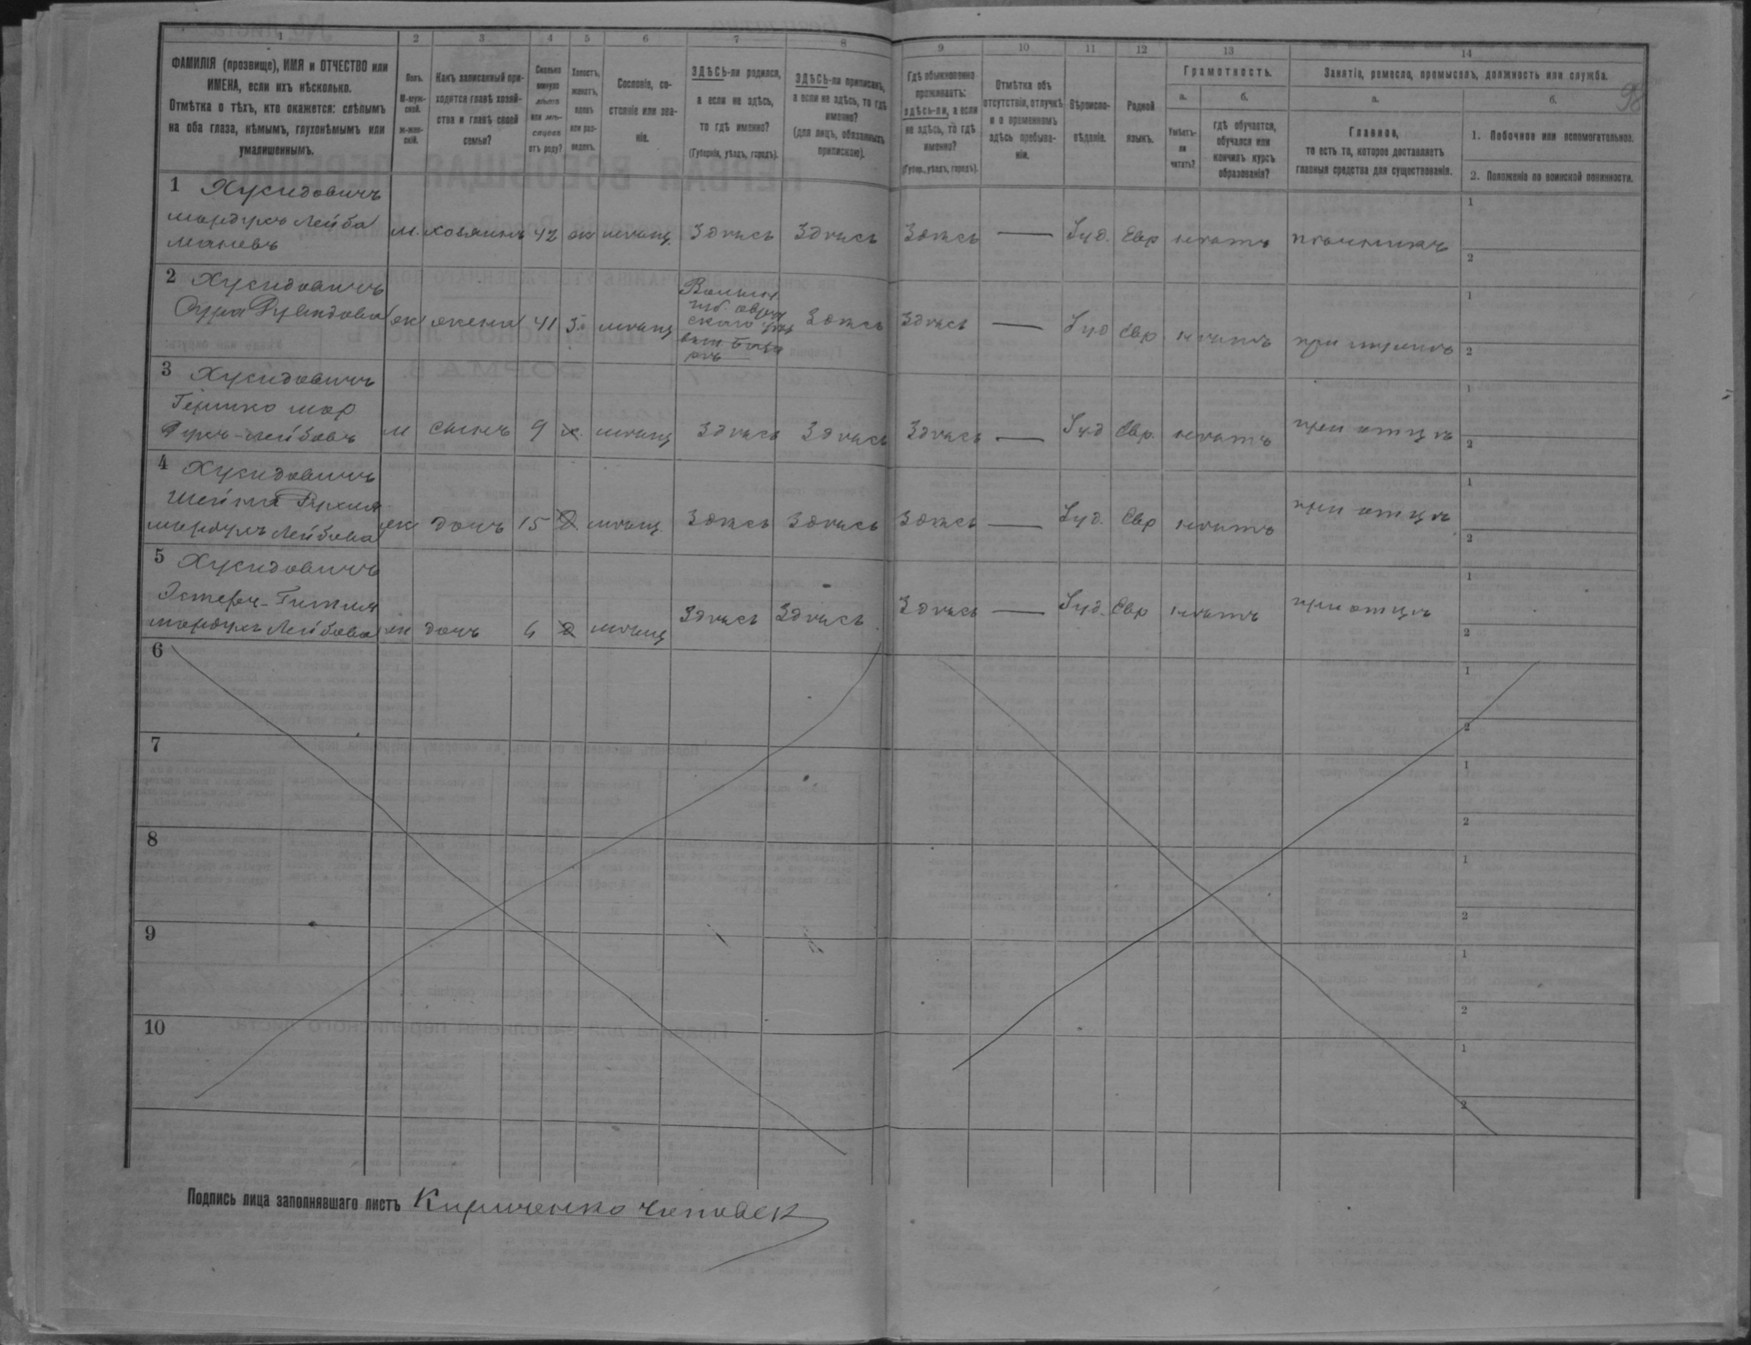 98
1 2 3 4 5 6 7 8 9 10 11 12 13 14
ФАМИЛІЯ (прозвище), ИМЯ и ОТЧЕСТВО или
ИМЕНА, если ихъ нѣсколько.
Отмѣтка о тѣхъ, кто окажется: слѣпымъ
на оба глаза, нѣмымъ, глухонѣмымъ или
умалишеннымъ.
Полъ.
М-муж-
ской.
ж-жен-
скій.
Какъ записанный при-
ходится главѣ хозяй-
ства и главѣ своей
семьи?
Сколько
минуло
лѣтъ
или мѣ-
сяцевъ
отъ роду?
Холостъ,
женатъ,
вдовъ
или раз-
веденъ.
Сословіе, со-
стояніе или зва-
ніе.
ЗДѢСЬ-ли родился,
а если не здѣсь,
то гдѣ именно?
(Губернія, уѣздъ, городъ).
ЗДѢСЬ-ли приписанъ,
а если не здѣсь, то гдѣ
именно?
(для лицъ, обязанныхъ
припиской).
Гдѣ обыкновенно
проживаетъ:
здѣсь-ли, а если
не здѣсь, то гдѣ
именно?
(Губер., уѣздъ, городъ).
Отмѣтка объ
отсутствіи, отлучкѣ
и о временномъ
здѣсь пребыва-
ніи.
Вѣроиспо-
вѣданіе.
Родной
языкъ.
Грамотность.
а.
Умѣетъ-
ли
читать?
б.
гдѣ обучается,
обучался или
кончилъ курсъ
образованія?
Занятіе, ремесло, промыселъ, должность или служба.
а.
Главное,
то есть то, которое доставляетъ
главныя средства для существованія.
б.
1. Побочное или вспомогательное.
2. Положеніе по воинской повинности.
1 Хусидовичъ
мордухъ Лейба
м хозяинъ 42 мѣщ Здѣсь Здѣсь Здѣсь — Іуд. Евр нѣтъ
1
2
2 Хусидовичъ
Сура
ж жена 41 мѣщ Здѣсь Здѣсь — Іуд Евр нѣтъ при мужѣ
1
2
3 Хусидовичъ
м сынъ 9 х. мѣщ Здѣсь Здѣсь Здѣсь — Іуд Евр. нѣтъ при отцѣ
1
2
4 Хусидовичъ
Шейна Рухля
мордухъ Лейбова
ж дочь 15 мѣщ Здѣсь Здѣсь Здѣсь — Іуд. Евр нѣтъ при отцѣ
1
2
5 Хусидовичъ
Эстеръ-Гитля
мордухъ Лейбова
ж дочь 6 мѣщ Здѣсь Здѣсь Здѣсь — Іуд. Евр нѣтъ при отцѣ
1
2
6
1
2
7
1
2
8
1
2
9
1
2
10
1
2
Подпись лица заполнявшаго листъ Кириченко